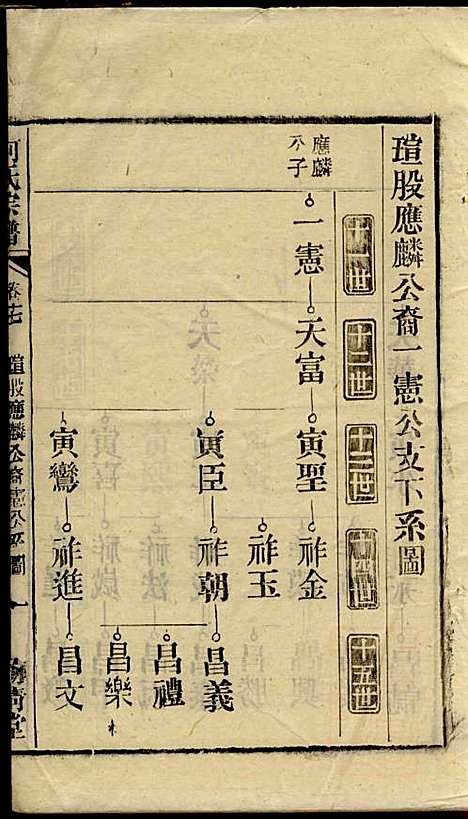 瑄股應麟公裔一憲公支下系圖
十一世
十二世
十三世
十四世
十五世
應麟
公子
一憲
天富
寅聖
祚金
祚玉
寅臣
祚朝
昌義
昌禮
昌樂
寅鸞
祚進
昌文
何氏宗譜
卷十七
瑄股應麟公裔一憲公系圖